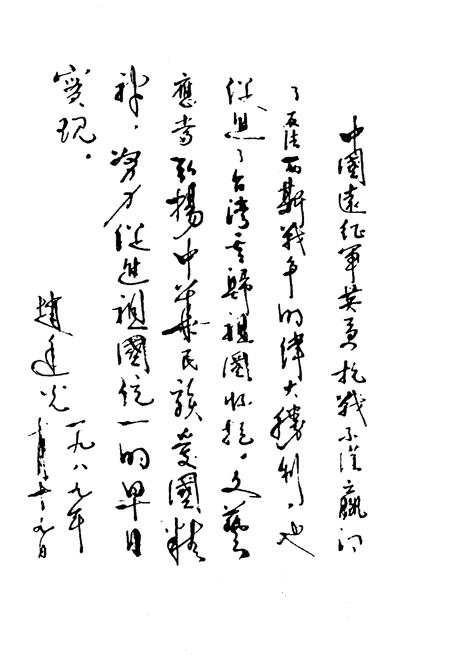 中國遠征軍英勇抗戰不僅贏得
了反法西斯戰争的偉大勝利，也
促進了台灣重歸祖國怀抱。文藝
應当弘揚中華民族愛國精
神，努力促進祖國统一的早日
實現。
趙廷光 一九八九年